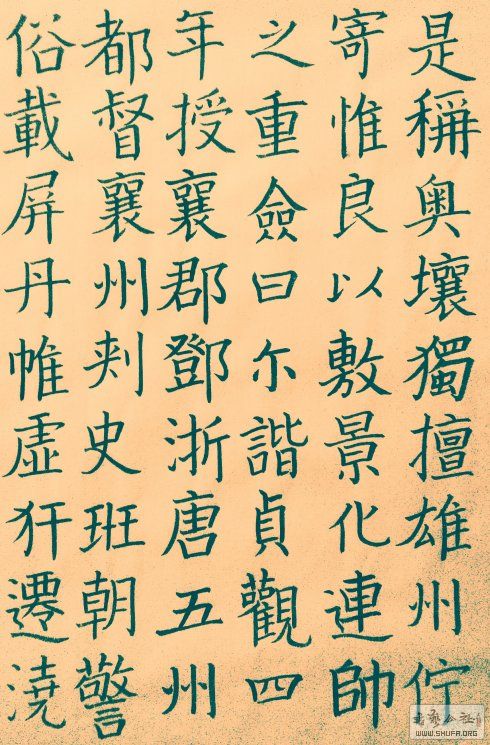 是稱奥壤獨擅雄州佇
寄惟良以敷景化連帥
之重僉曰尒諧貞觀四
年授襄郡鄧浙唐五州
都督襄州刾史班朝警
俗載屏丹帷虛犴遷澆
WWW.SHUFA.ORG